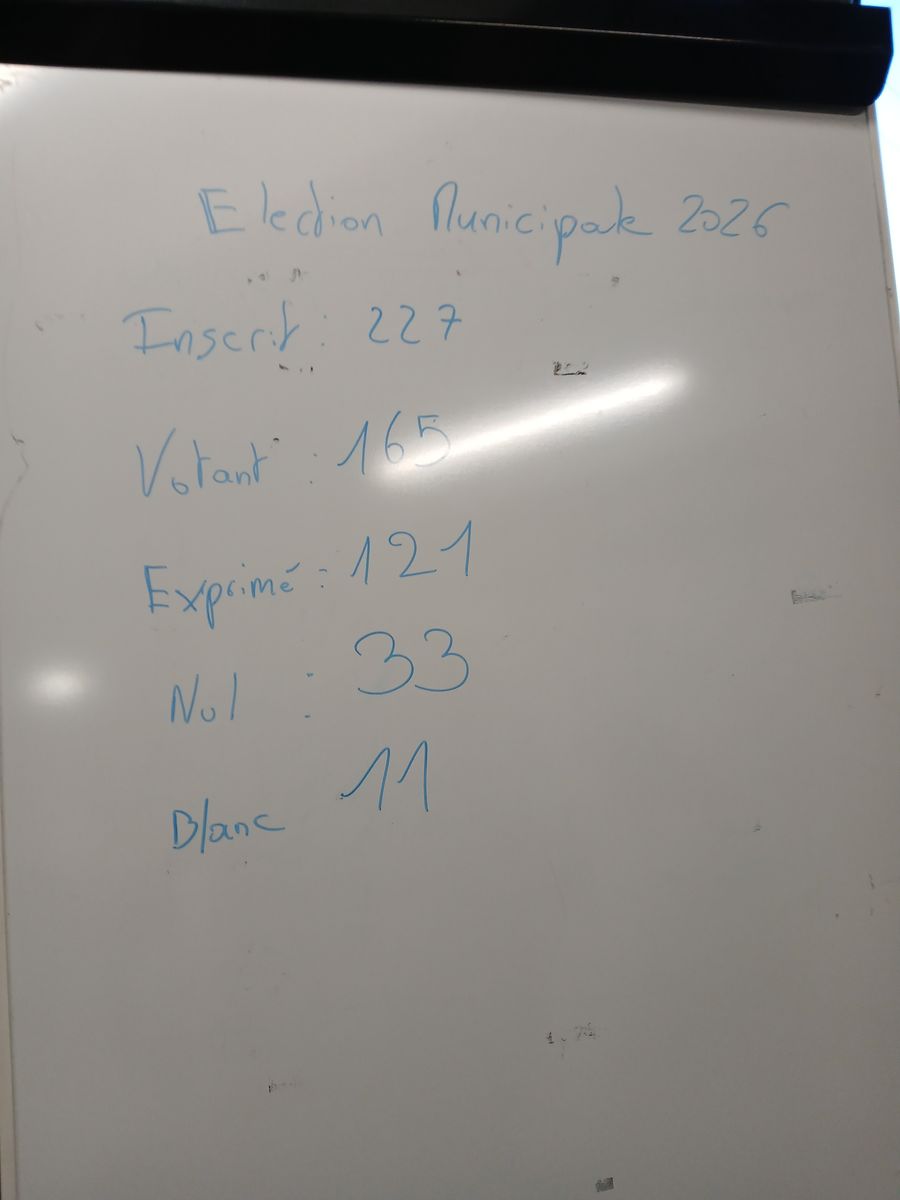 Election Municipale 2026
Inscrit : 227
Votant : 165
Exprimé : 121
Nul : 33
Blanc 11